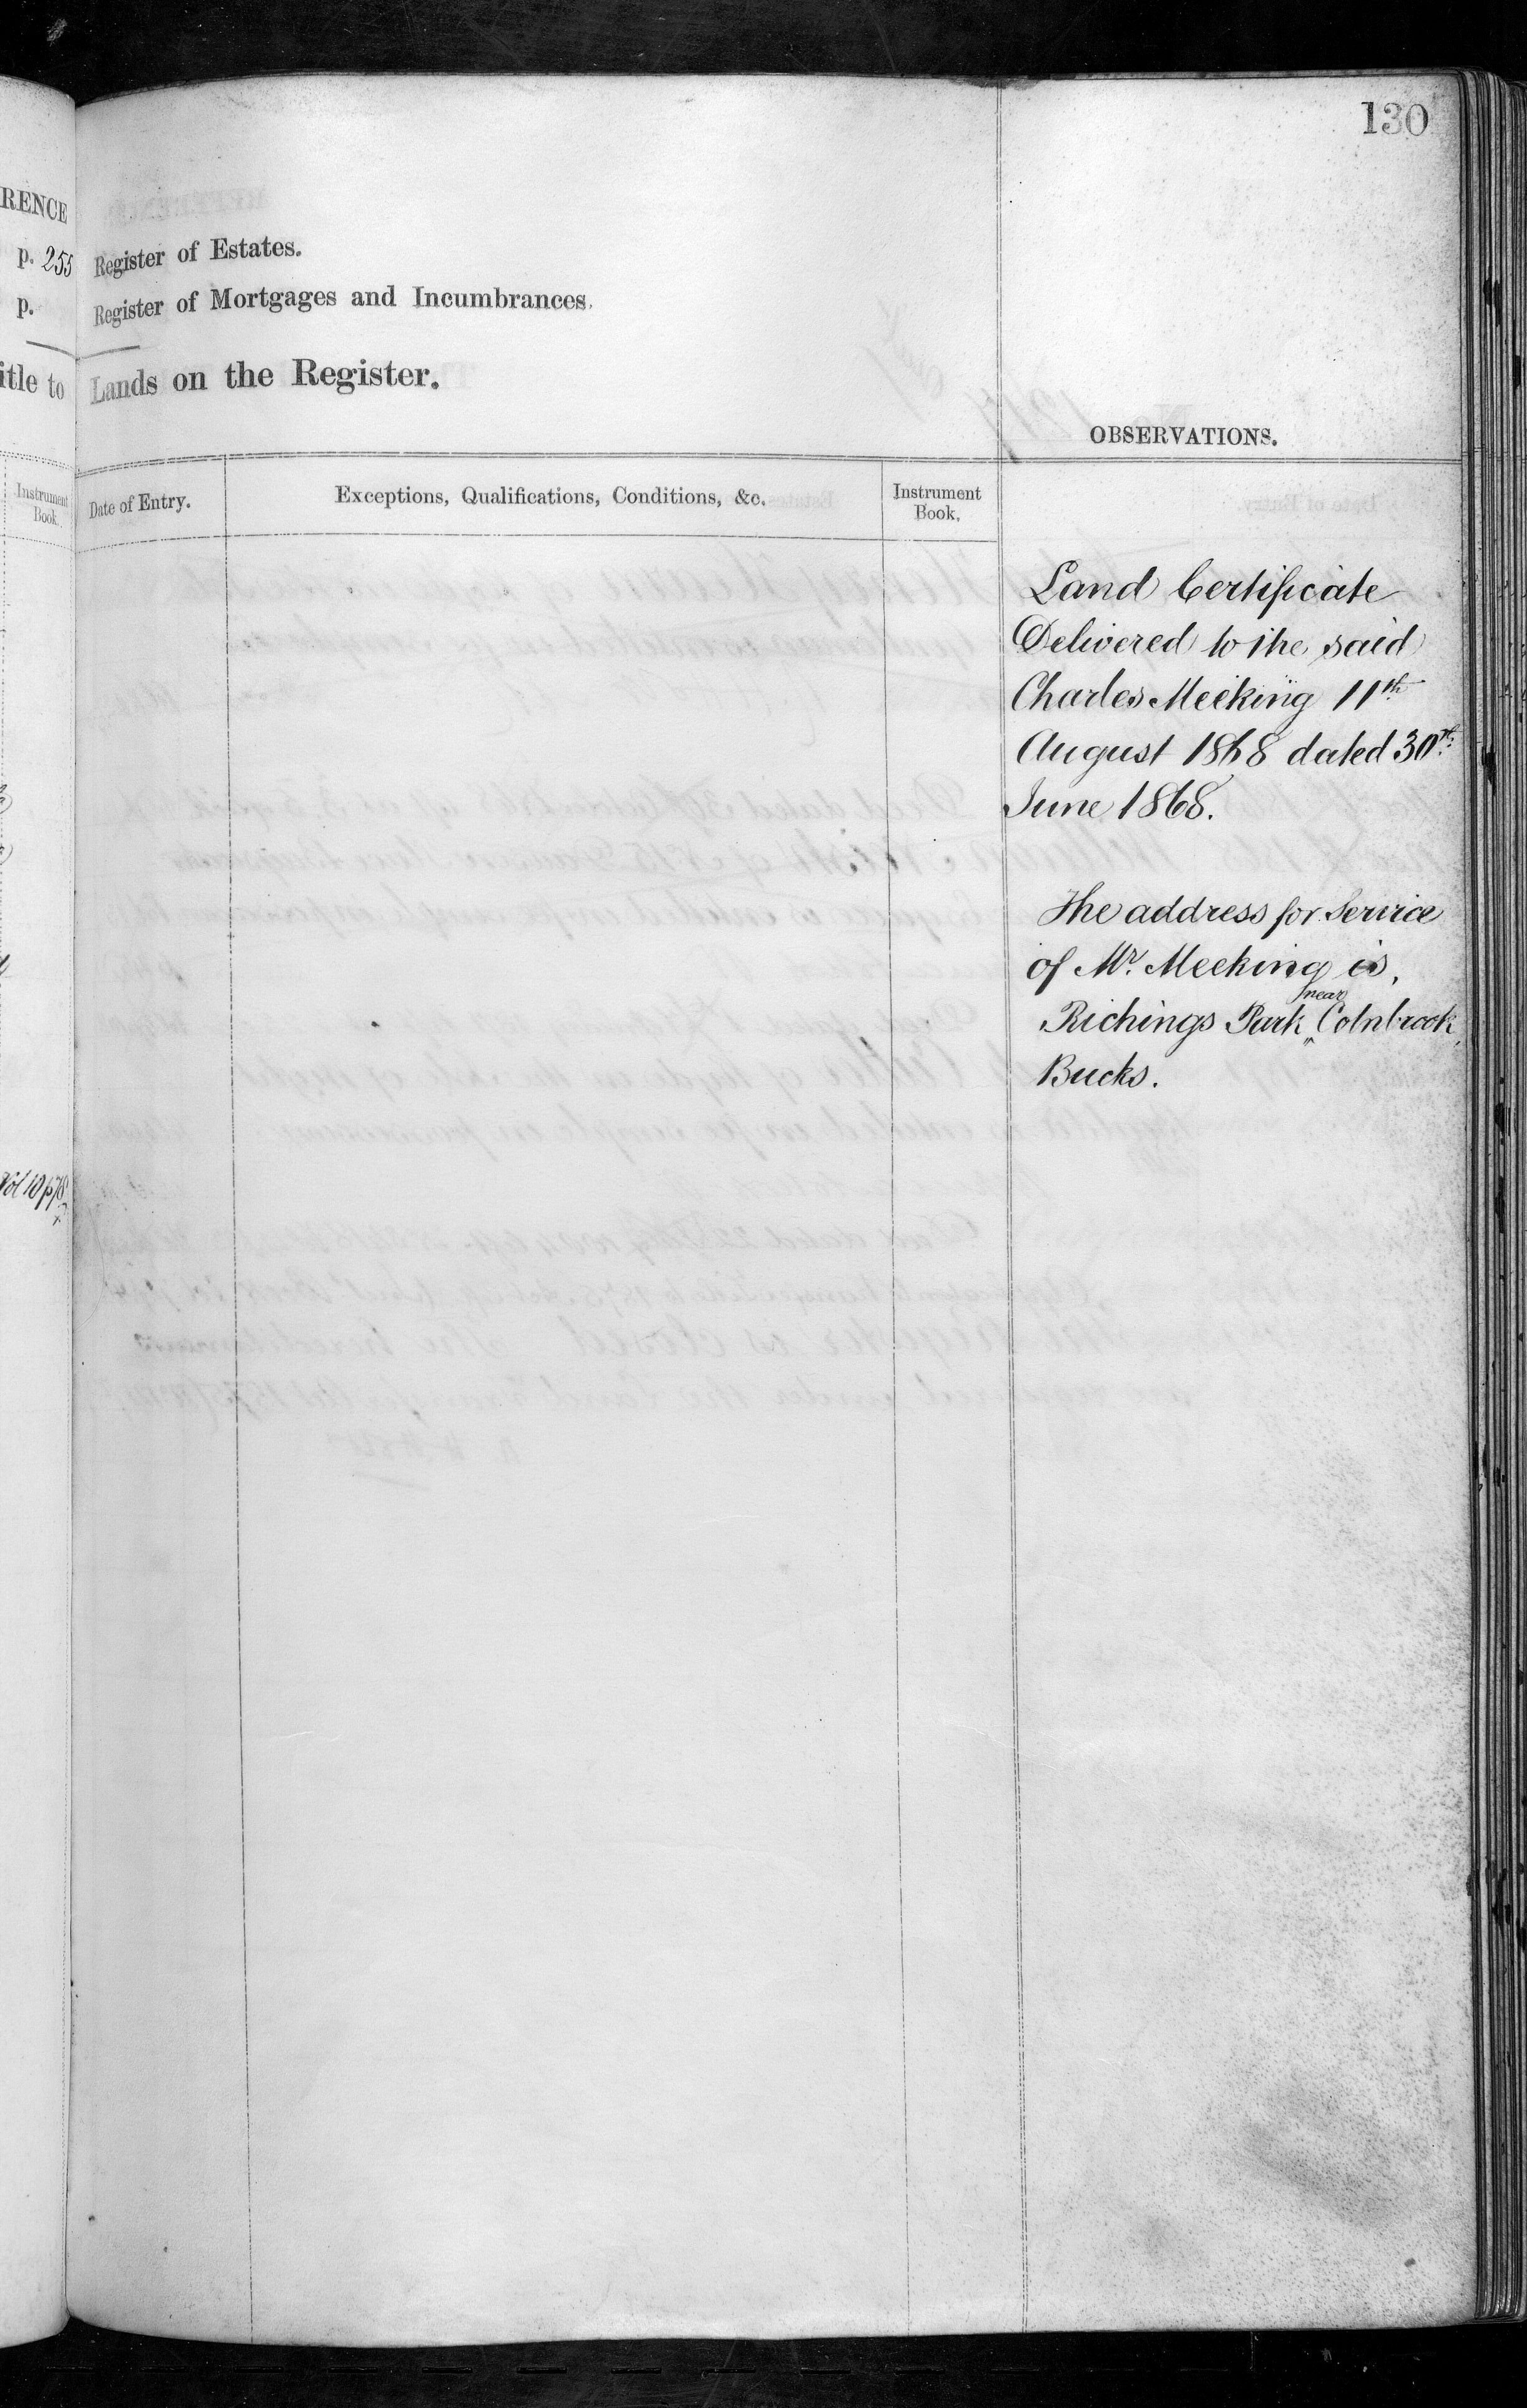 130
RENCE
p. 255 Register of Estates.
p. Register of Mortgages and Incumbrances.
itle to Lands on the Register.
OBSERVATIONS.
Instrument Book.
Date of Entry.
Exceptions, Qualifications, Conditions, &c.
Instrument Book.
Land Certificate
Delivered to the said
Charles Meeking 11th
August 1868 dated 30th
June 1868.
The address for Service
of Mr. Meeking is,
near
Richings Park,, Colnbrook,
Bucks.
Vol 10 p 78